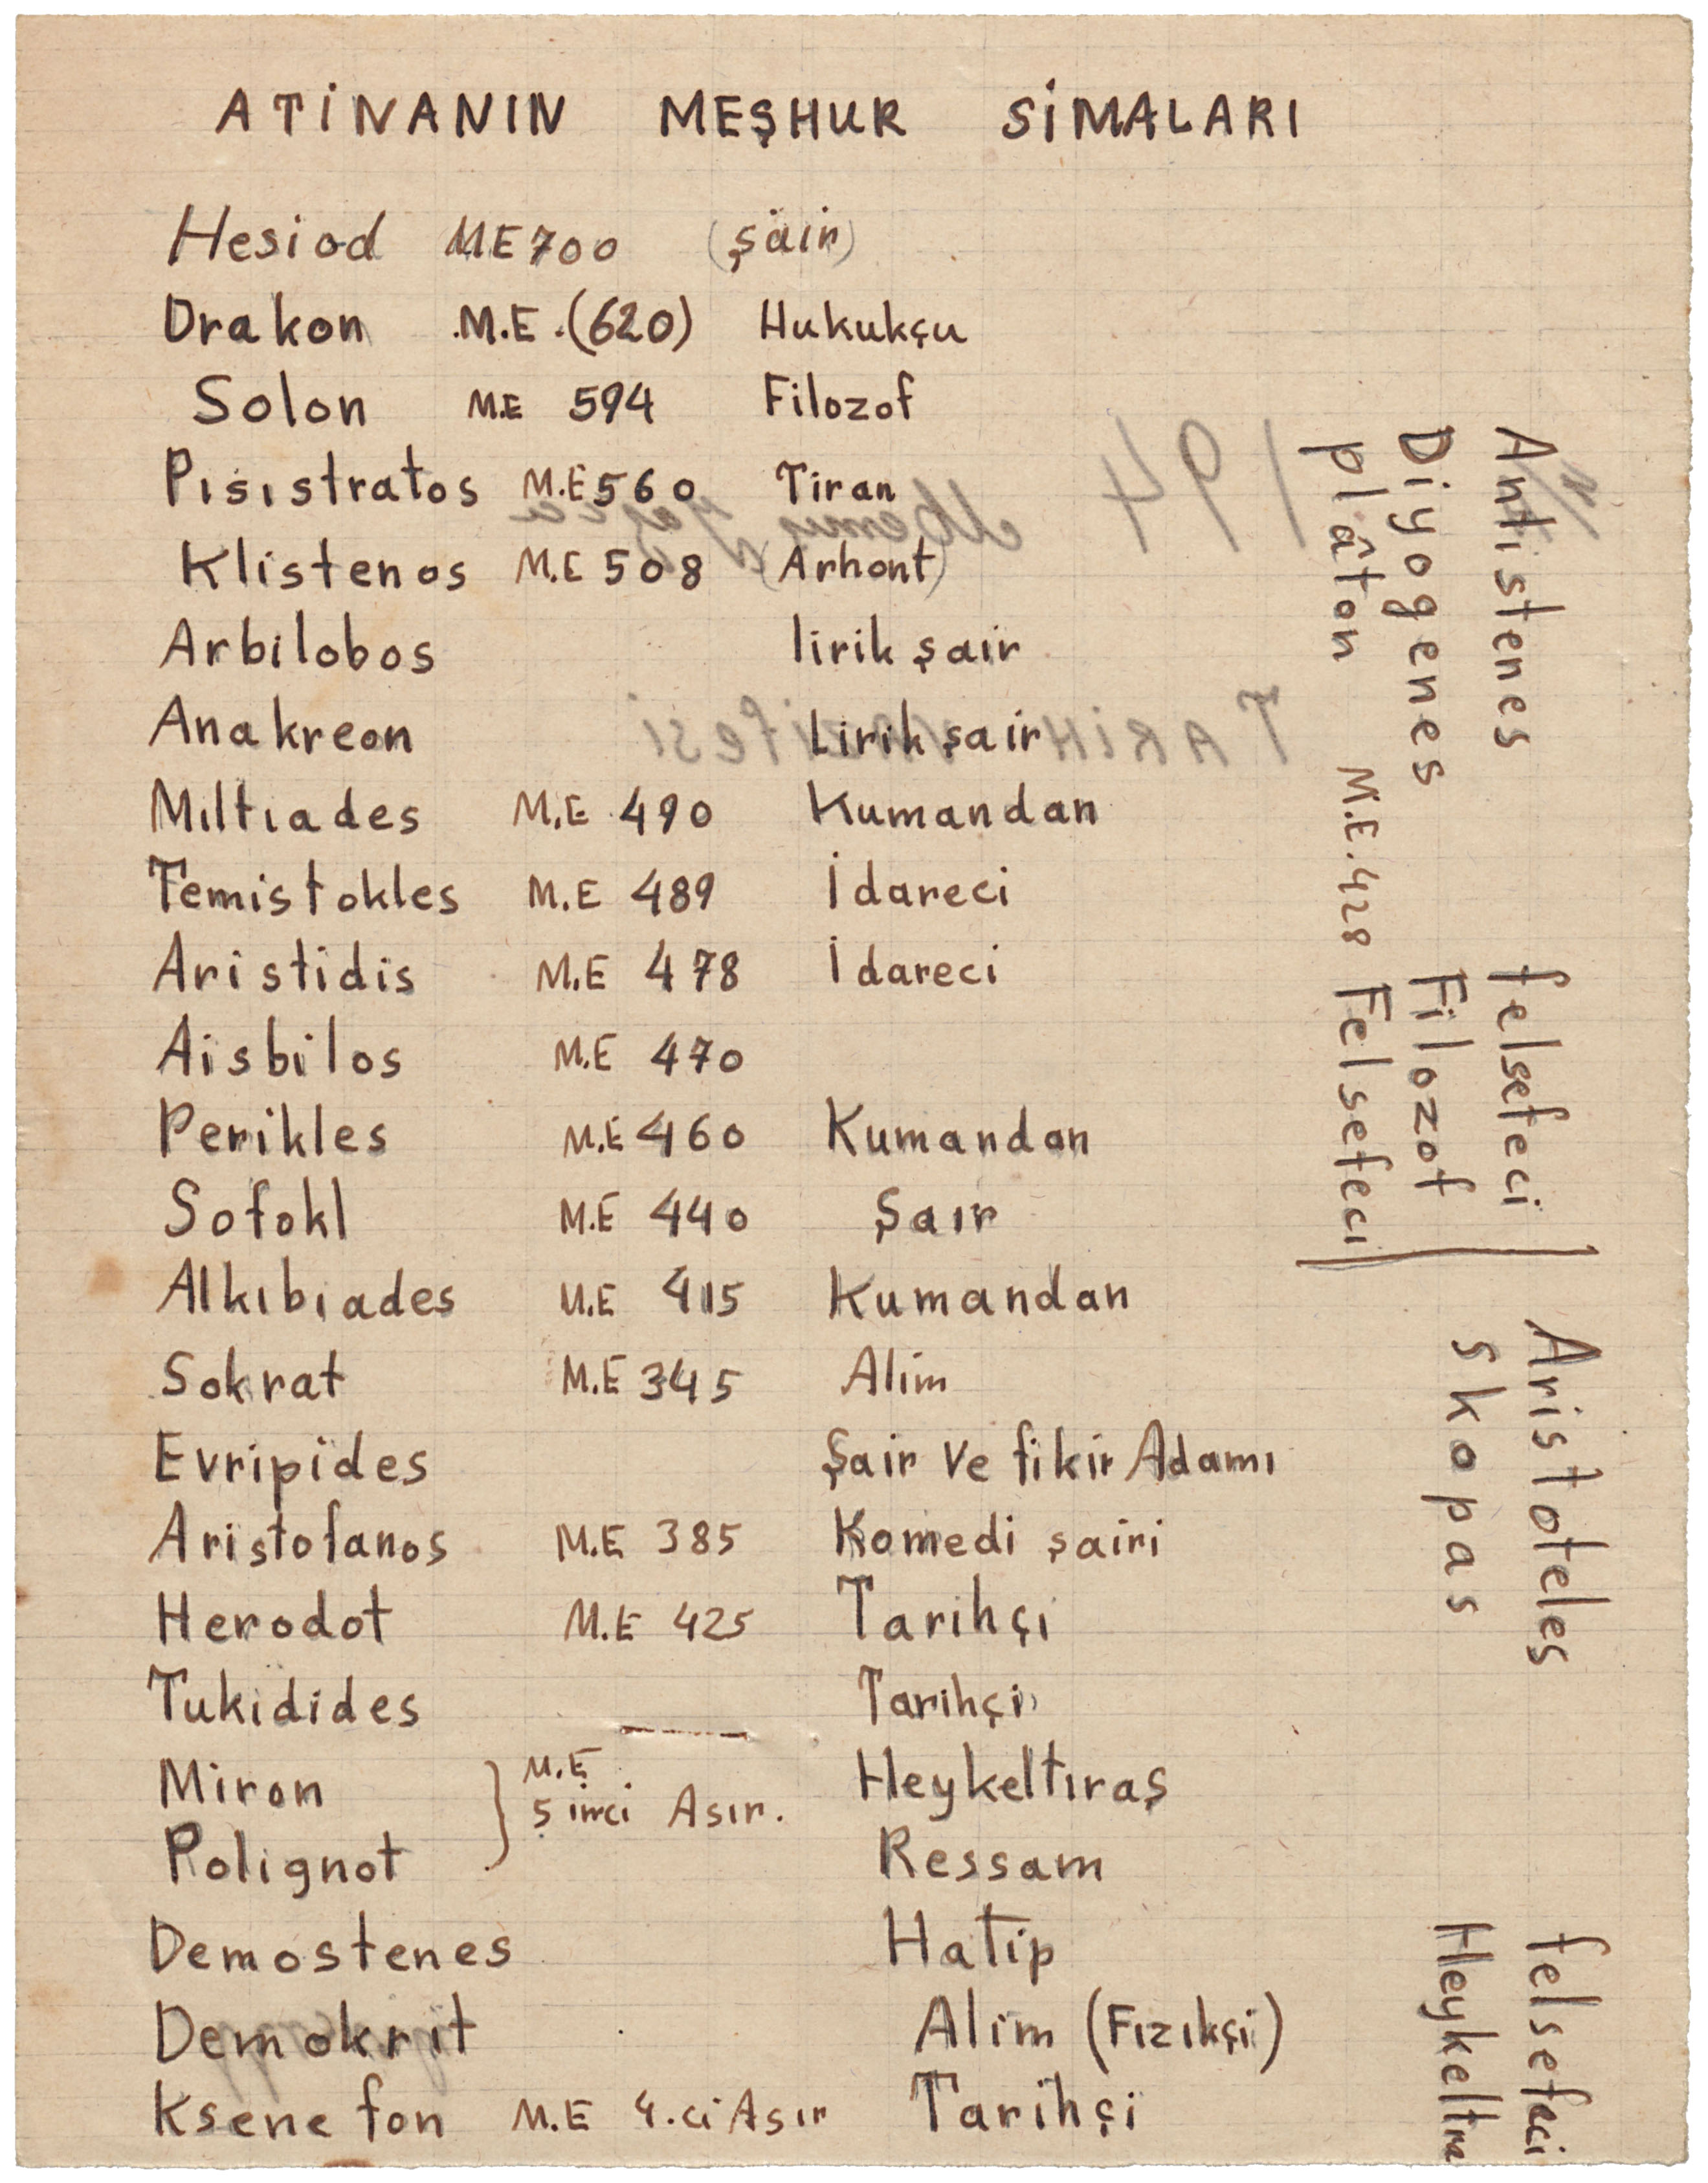 ATİNANIN MEŞHUR SİMALARI
Hesiod ME 700 (şäir)
Drakon .M.E.(620) Hukukçu
Solon M.E 594 Filozof
Pısıstratos M.E 560 Tiran
Klistenos M.E 508 (Arhont)
Arbilobos lirik şair
Anakreon Lirik şair
Mıltıades M.E 490 Kumandan
Temistokles M.E 489 İdareci
Aristidis M.E 478 İdareci
Aisbilos M.E 470
Perikles M.E 460 Kumandan
Sofokl M.E 440 Şaır
Alkıbıades M.E 415 Kumandan
Sokrat M.E 345 Alim
Evripides Şair Ve fikir Adamı
Aristofanos M.E 385 Komedi şairi
Herodot M.E 425 Tarihçi
Tukidides Tarihçi
Miron } M.E Heykeltıraş
5 inci Asır.
Polignot Ressam
Demostenes Hatip
Demokrit Alim (Fızıkçi)
Ksenefon M.E 4.ci Asır Tarihçi
Antistenes felsefeci
Diyogenes Filozof
plâton M.E.428 Felsefecı
Aristoteles felsefeci
Skopas Heykeltra
194
TARİH